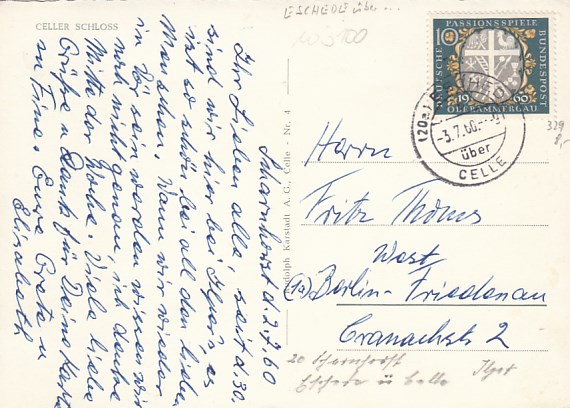 CELLER SCHLOSS
ESCHEDE über ...
Scharnhorst d. 2.7.60
Ihr Lieben alle, seit d. 30.
sind wir hier bei Ilper's, es
ist so schön bei all den lieben
Menschen. Wann wir wieder
in Bln sein werden wissen wir
noch nicht genau, ich denke
Mitte der Woche. Viele liebe
Grüße u Dank für Deine Karte
an Tine. Eure Grete u
Elisabeth
Rudolph Karstadt A. G., Celle - Nr. 4
DEUTSCHE BUNDESPOST
PASSIONSSPIELE
10
1960
OBERAMMERGAU
(20a)
-3.7.60.
über
CELLE
329
Herrn
Fritz Thoms
West
(1) Berlin-Friedenau
Cranachstr 2
20 Scharnhorst
Eschede ü Celle
Ilper